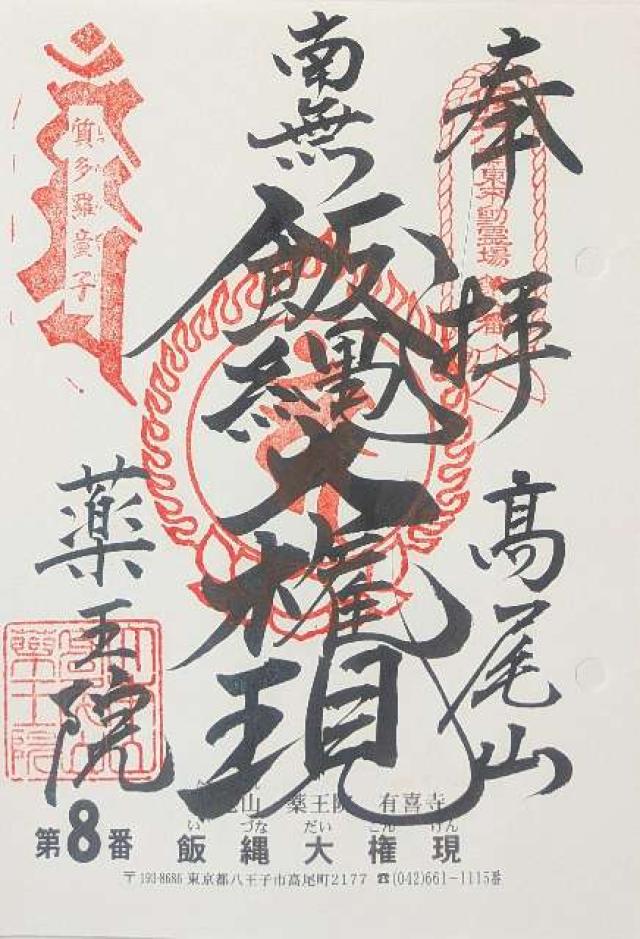 奉拝
東不動霊場
高尾山
南無
飯縄大権現
質多羅童子
薬王院
山 薬王院 有喜寺
第8番
い づな だい ごん げん
飯縄大権現
〒193-8686 東京都八王子市高尾町2177 ☎(042)661-1115番